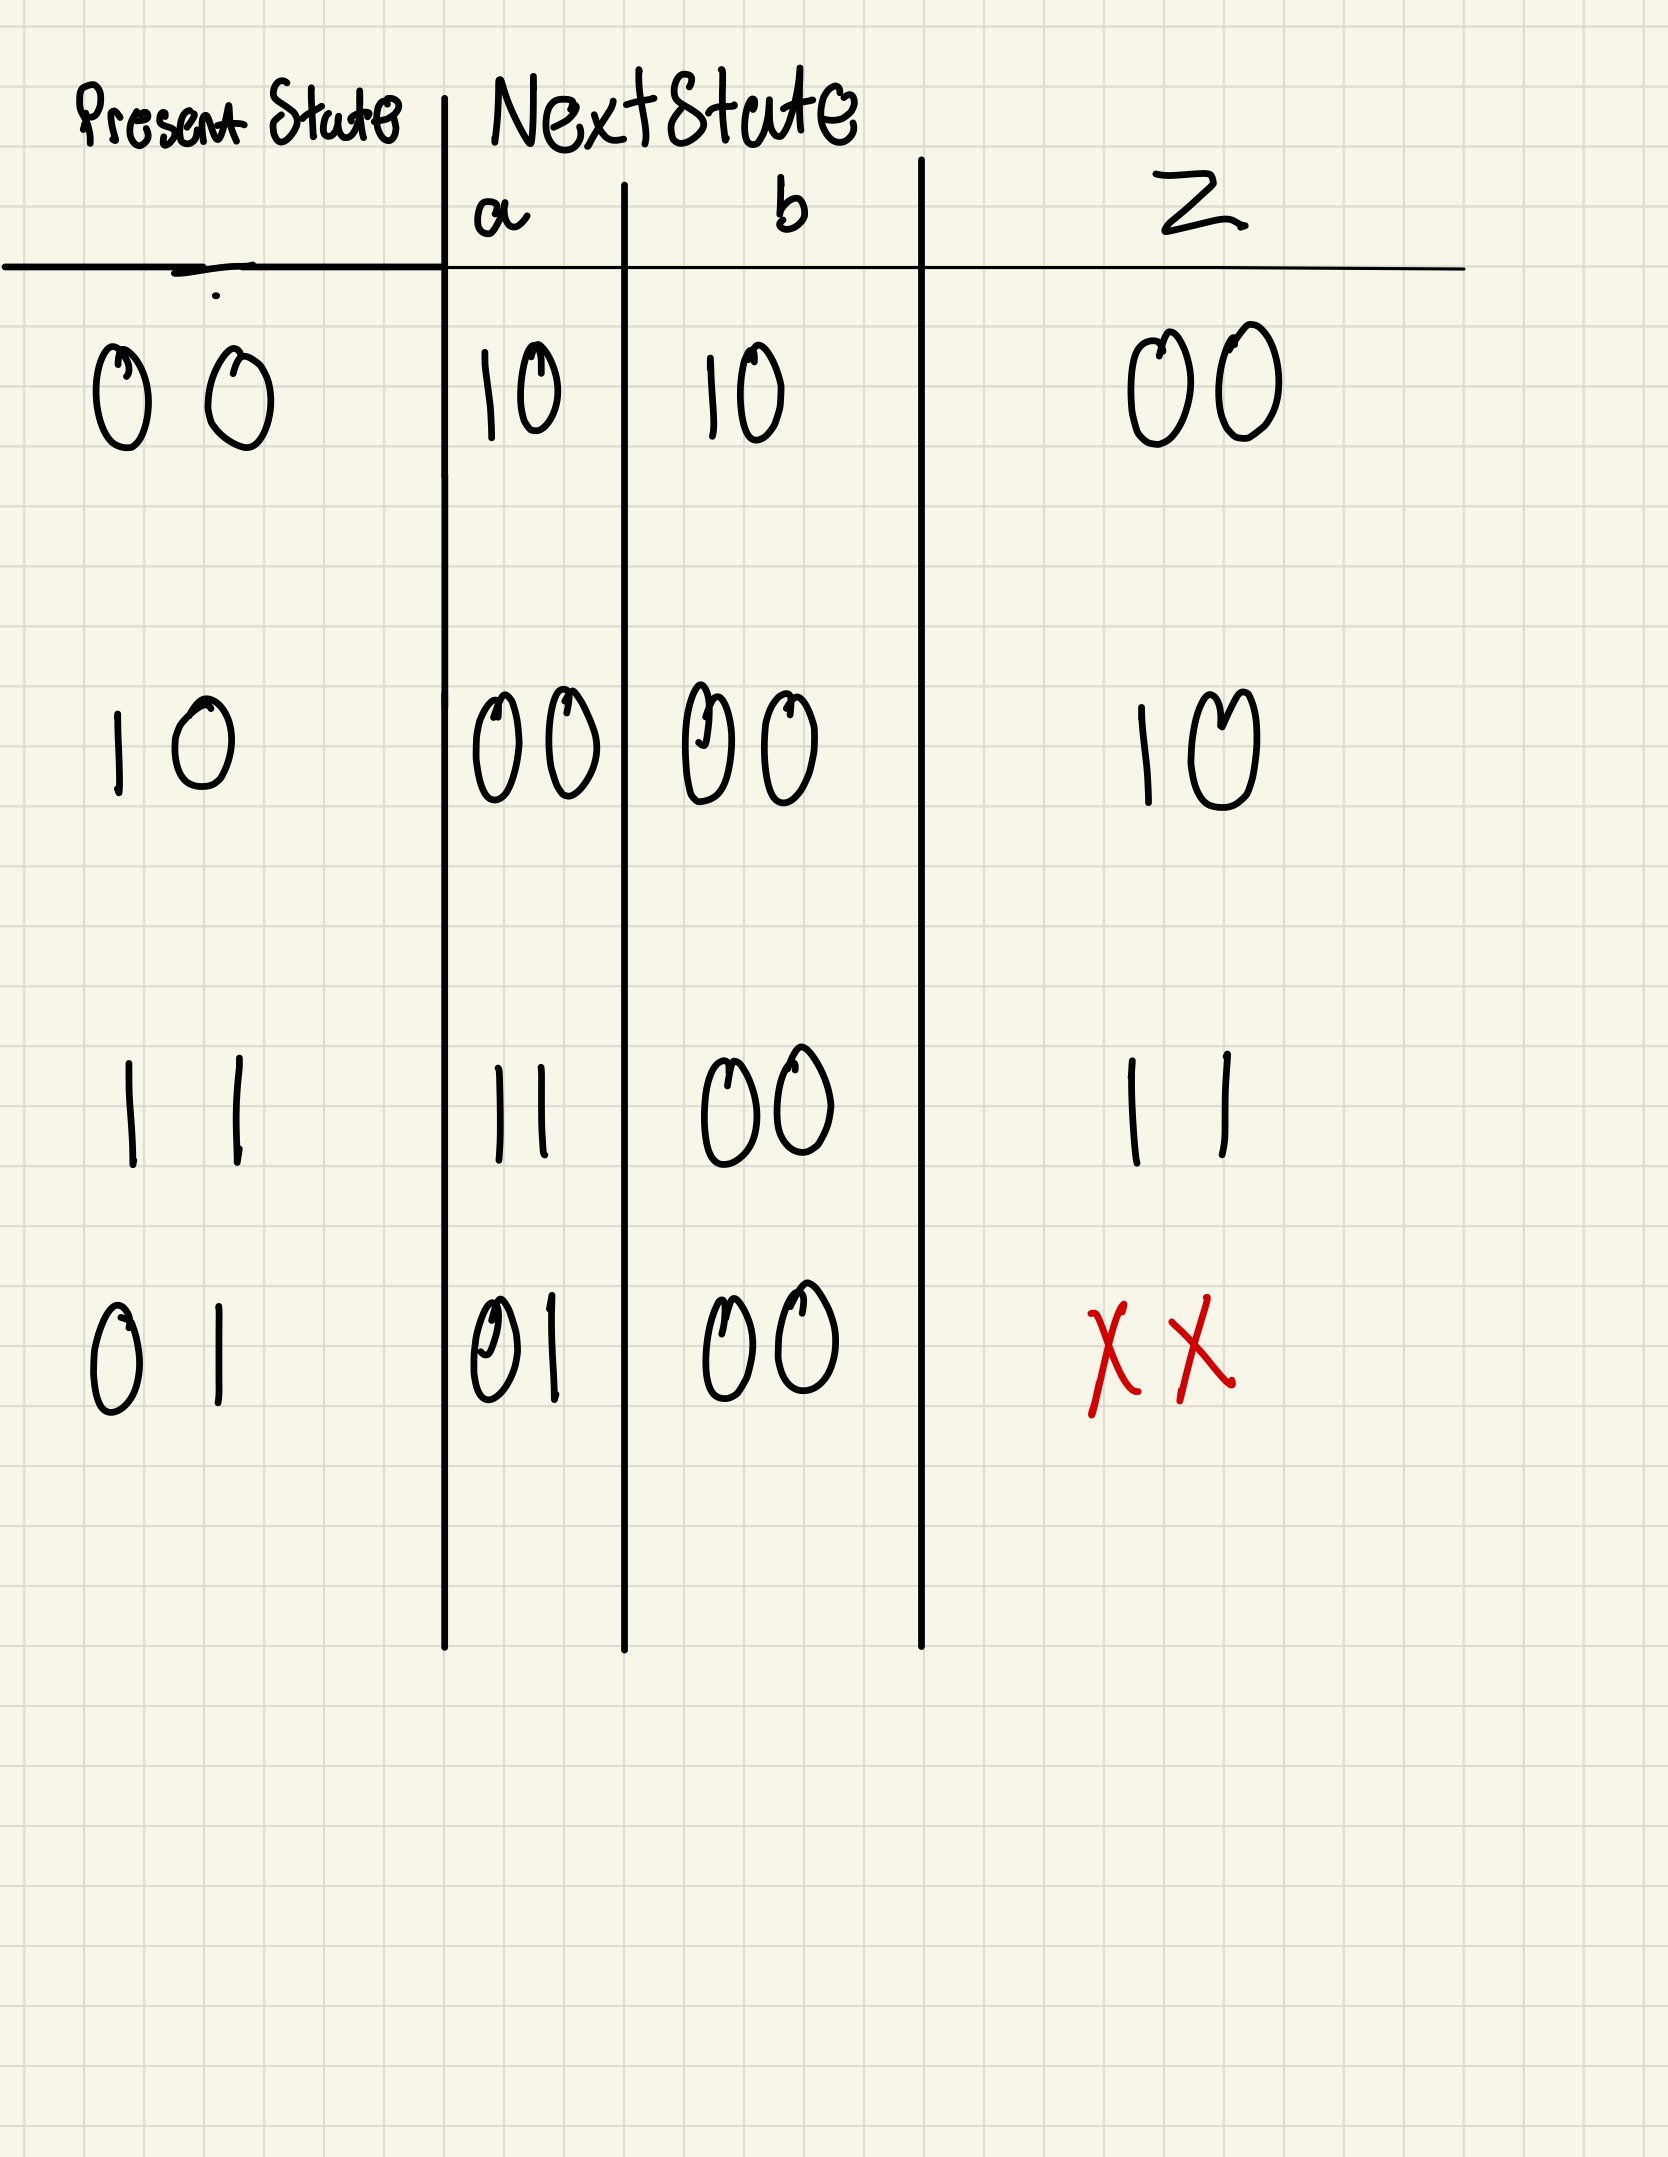 Present State Next State
a b Z
0 0 10 10 00
10 00 00 10
1 1 11 00 11
0 1 01 00 X X